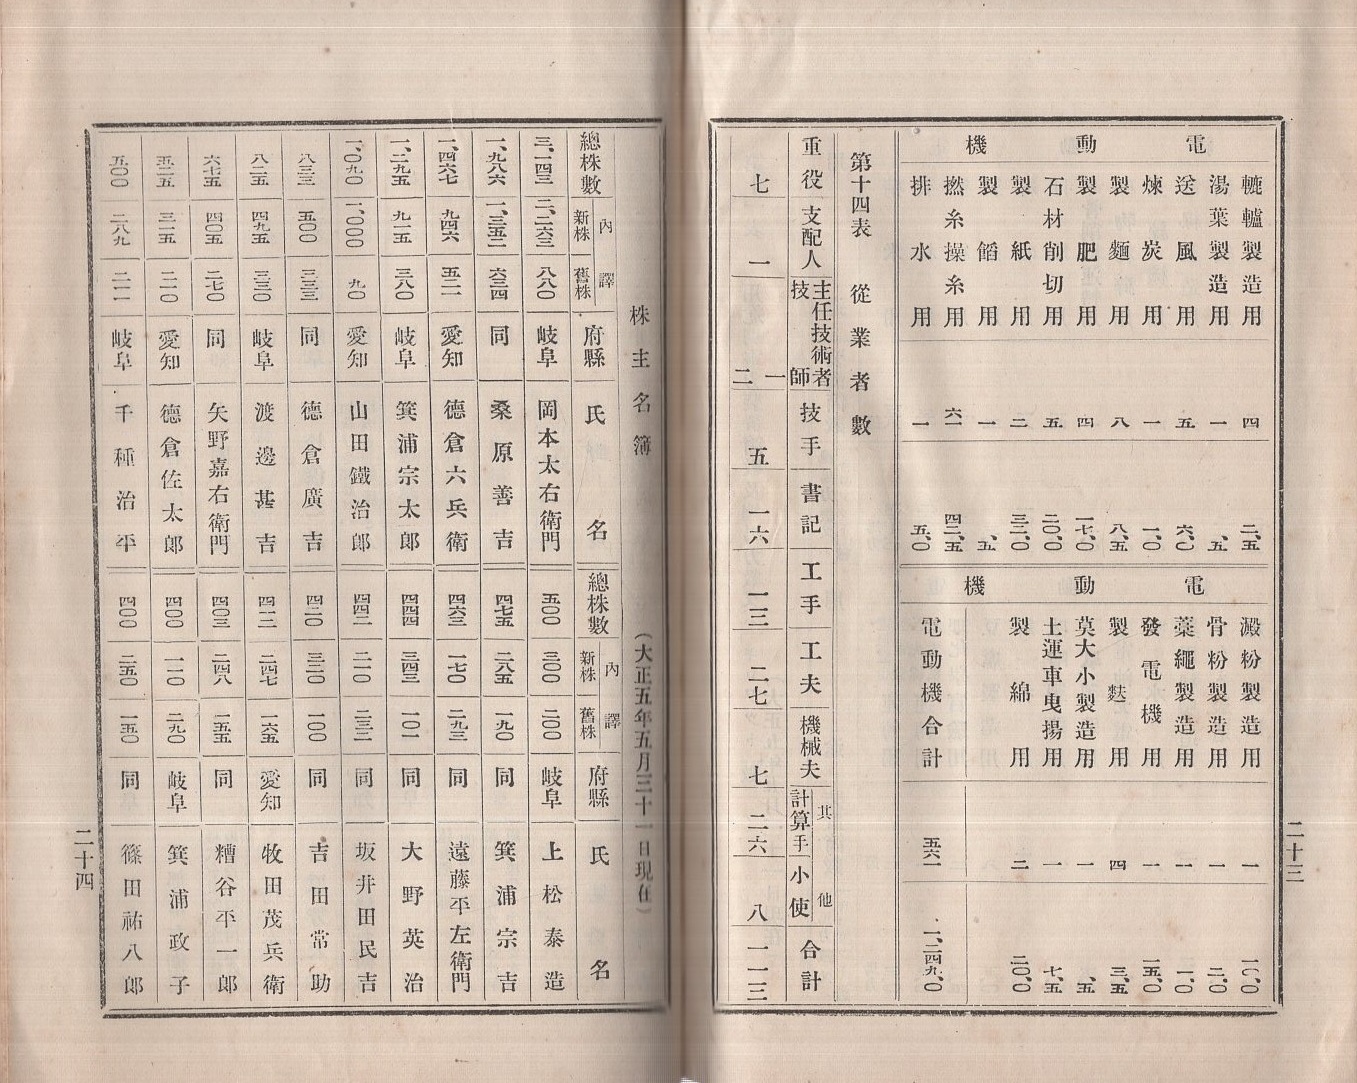 電動機
轆轤製造用 四 二、五
湯葉製造用 一 、五
送風用 五 六、〇
煉炭用 一 一、〇
製麵用 八 八、五
製肥用 四 一七、〇
石材削切用 五 二〇、〇
製紙用 二 三二、〇
製餡用 一 、五
撚糸操糸用 六一 四二、五
排水用 一 五、〇
電動機
澱粉製造用 一 一〇、〇
骨粉製造用 一 二、〇
藁繩製造用 一 一、〇
發電機用 一 一五、〇
製麩用 四 三、五
莫大小製造用 一 、五
土運車曳揚用 一 七、五
製綿用 二 二〇、〇
電動機合計 五六一 一、二四九、〇
第十四表 從業者數
重役 七
支配人 一
主任技術者 一
技師 二
技手 五
書記 一六
工手 一三
工夫 二七
機械夫 七
其他
計算手 二六
小使 八
合計 一一三
二十三
株主名簿 (大正五年五月三十一日現在)
總株數 內譯 新株 舊株 府縣 氏名
三、一四三 二、二六三 八八〇 岐阜 岡本太右衛門
一、九八六 一、三五二 六三四 同 桑原善吉
一、四六七 九四六 五二一 愛知 德倉六兵衛
一、二九五 九一五 三八〇 岐阜 箕浦宗太郎
一、〇九〇 一、〇〇〇 九〇 愛知 山田鐵治郎
八三三 五〇〇 三三三 同 德倉廣吉
八二五 四九五 三三〇 岐阜 渡邊甚吉
六七五 四〇五 二七〇 同 矢野嘉右衛門
五二五 三一五 二一〇 愛知 德倉佐太郎
五〇〇 二八九 二一一 岐阜 千種治平
總株數 內譯 新株 舊株 府縣 氏名
五〇〇 三〇〇 二〇〇 岐阜 上松泰造
四七五 二八五 一九〇 同 箕浦宗吉
四六三 一七〇 二九三 同 遠藤平左衛門
四四四 三四三 一〇一 同 大野英治
四四二 二一〇 二三二 同 坂井田民吉
四二〇 三二〇 一〇〇 同 吉田常助
四一二 二四七 一六五 愛知 牧田茂兵衛
四〇三 二四八 一五五 同 糟谷平一郎
四〇〇 一一〇 二九〇 岐阜 箕浦政子
四〇〇 二五〇 一五〇 同 篠田祐八郎
二十四